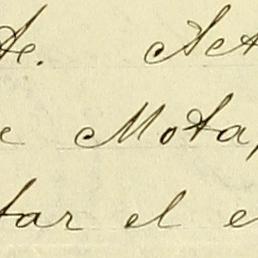 te. Act
e Mota,
tar el e